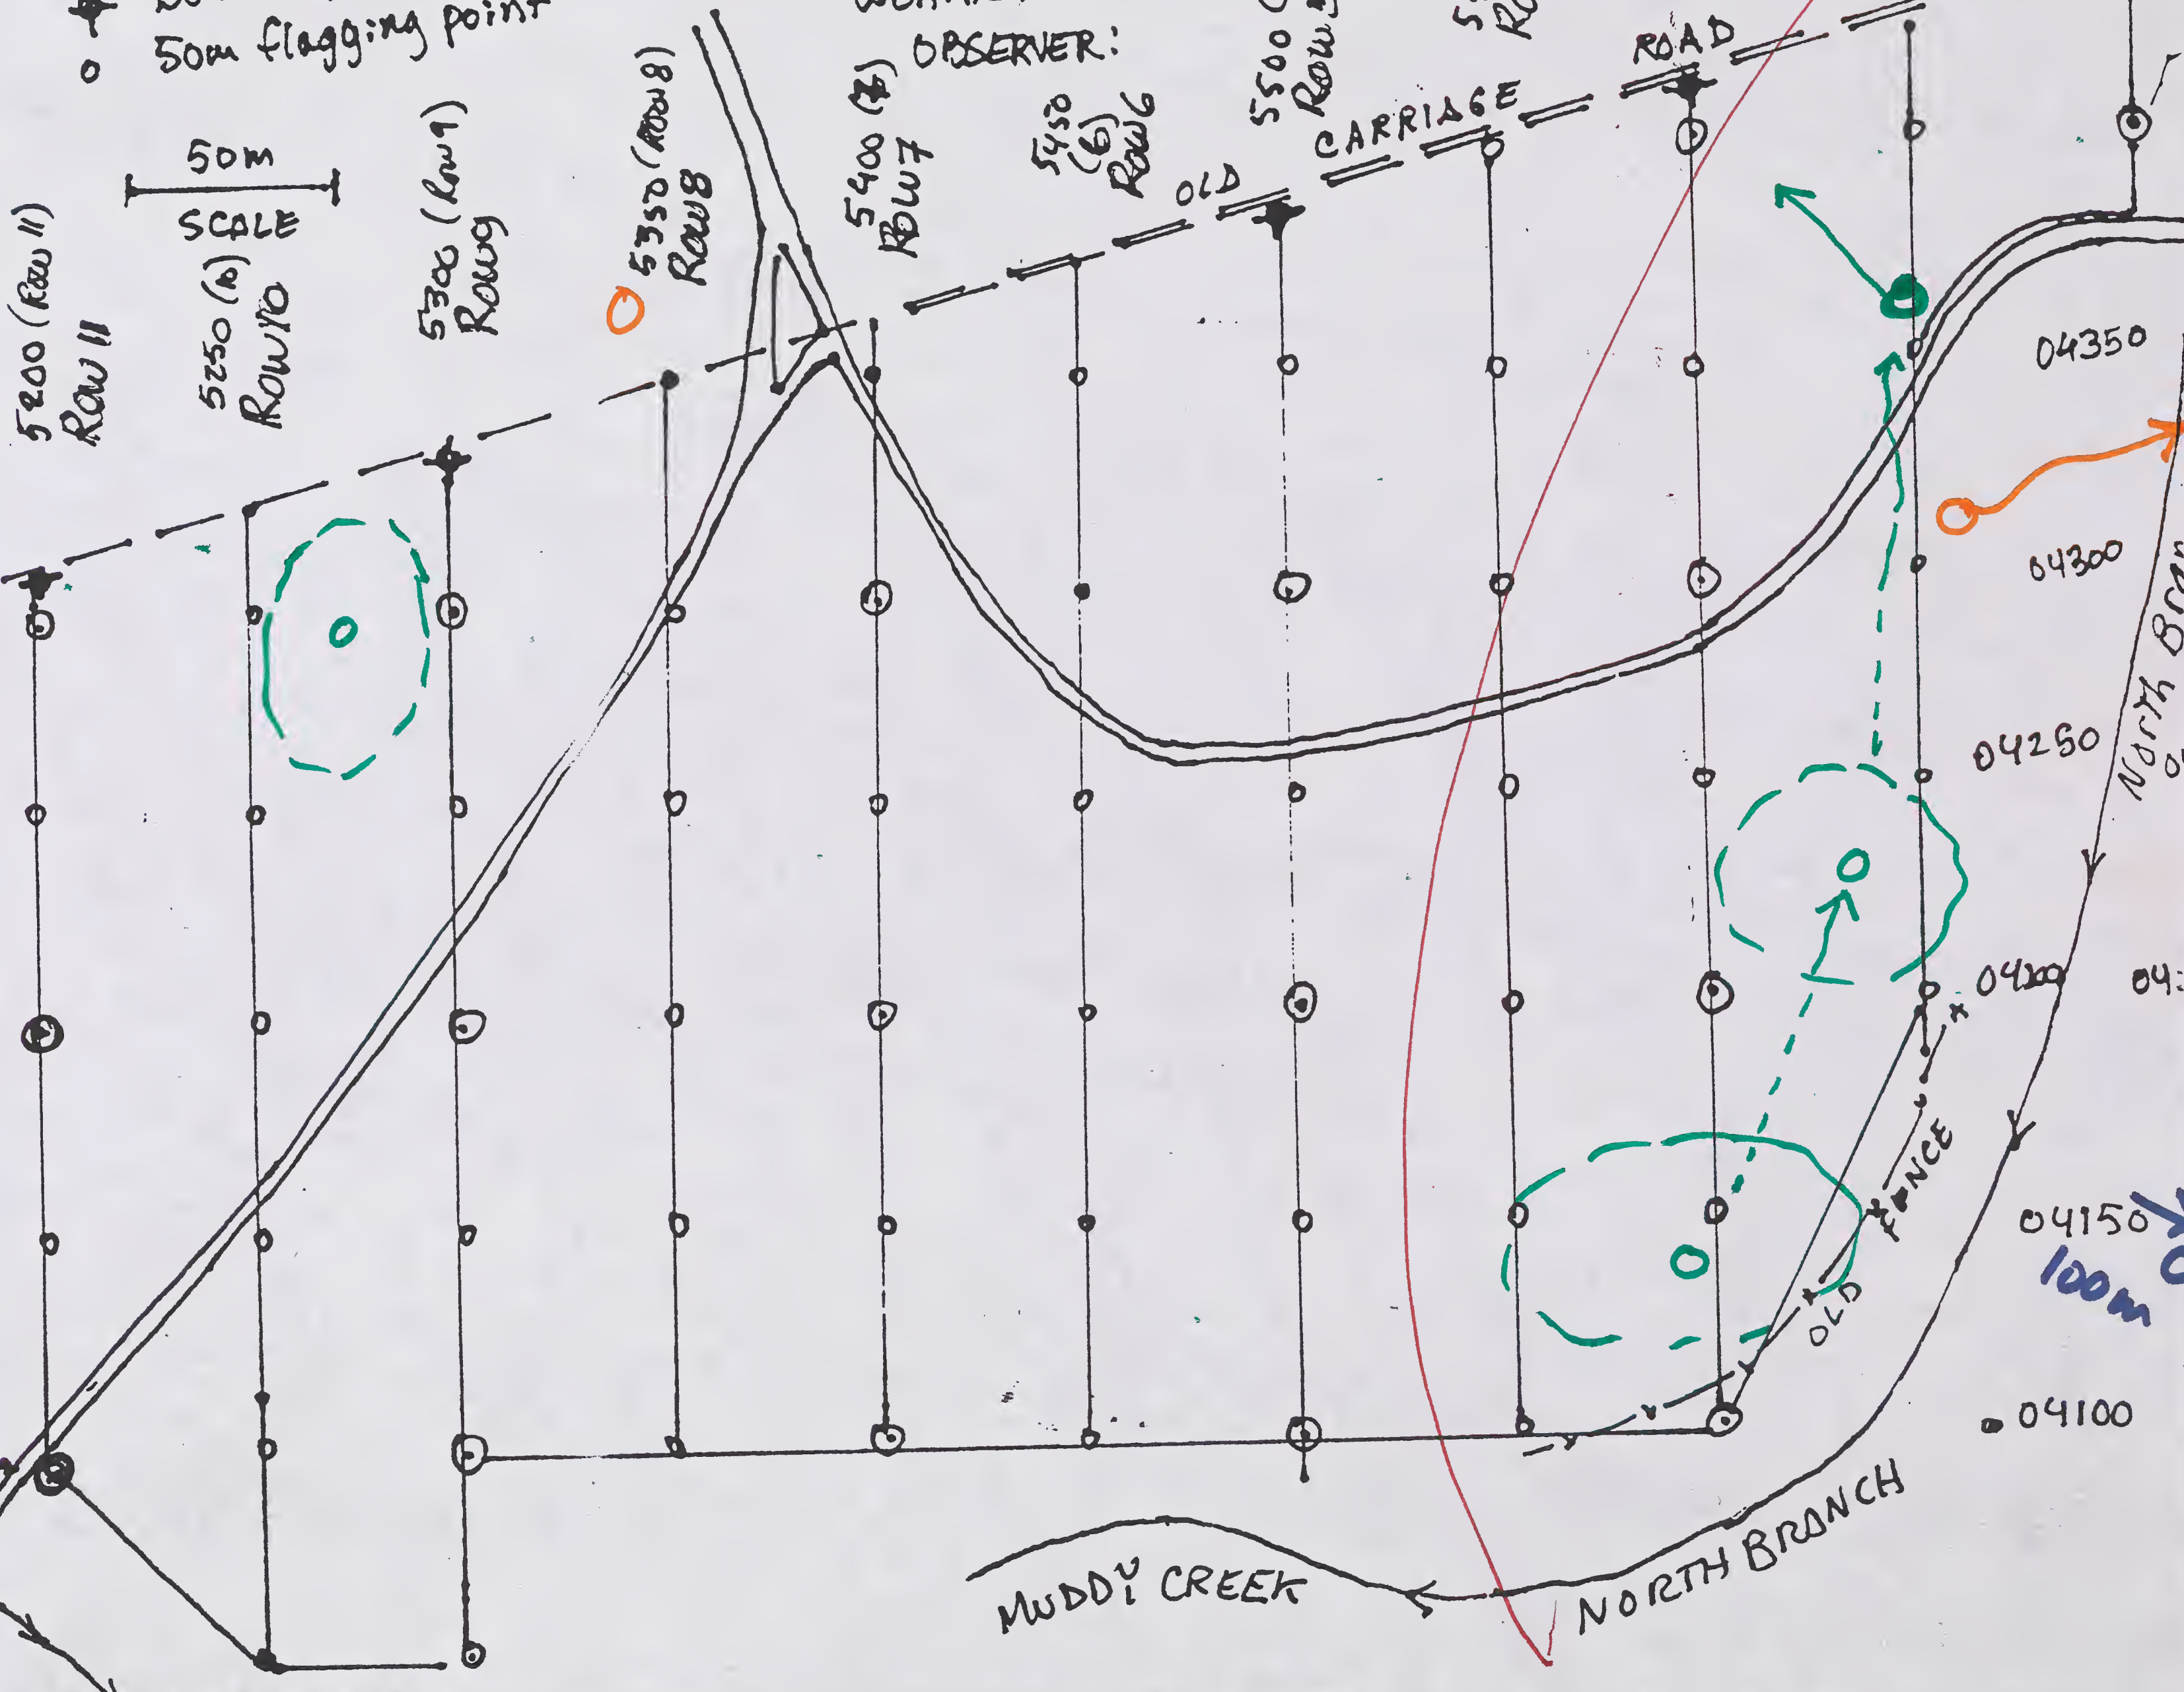 50m flagging point
OBSERVER:
50m
SCALE
5200 (Row 11)
Row 11
5250 (10)
Row 10
5300 (Row 9)
Row 9
5350 (Row 8)
Row 8
5400 (7)
Row 7
5450
(6)
Row 6
5500
Row 5
OLD CARRIAGE ROAD
04350
04300
04250
04200
04150
100m
04100
North
OLD FENCE
MUDDY CREEK
NORTH BRANCH